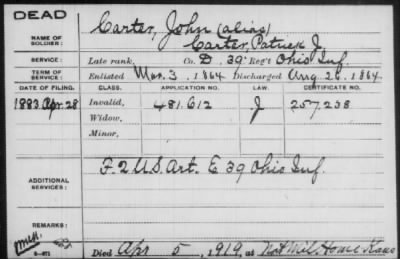 DEAD
Carter, John (alias)
NAME OF SOLDIER:
Carter, Patrick J.
SERVICE: Late rank, Co. D, 39 Reg't Ohio Inf.
TERM OF SERVICE: Enlisted Mar. 3, 1864 Discharged Aug 26, 1864
DATE OF FILING. CLASS. APPLICATION NO. LAW. CERTIFICATE NO.
1883 Apr. 28 Invalid, 481.612 J 257.238
Widow,
Minor,
ADDITIONAL SERVICES:
F 2 U.S. Art. E 39 Ohio Inf.
REMARKS:
Died Apr 5, 1919, at Nat Mil. Home Kans